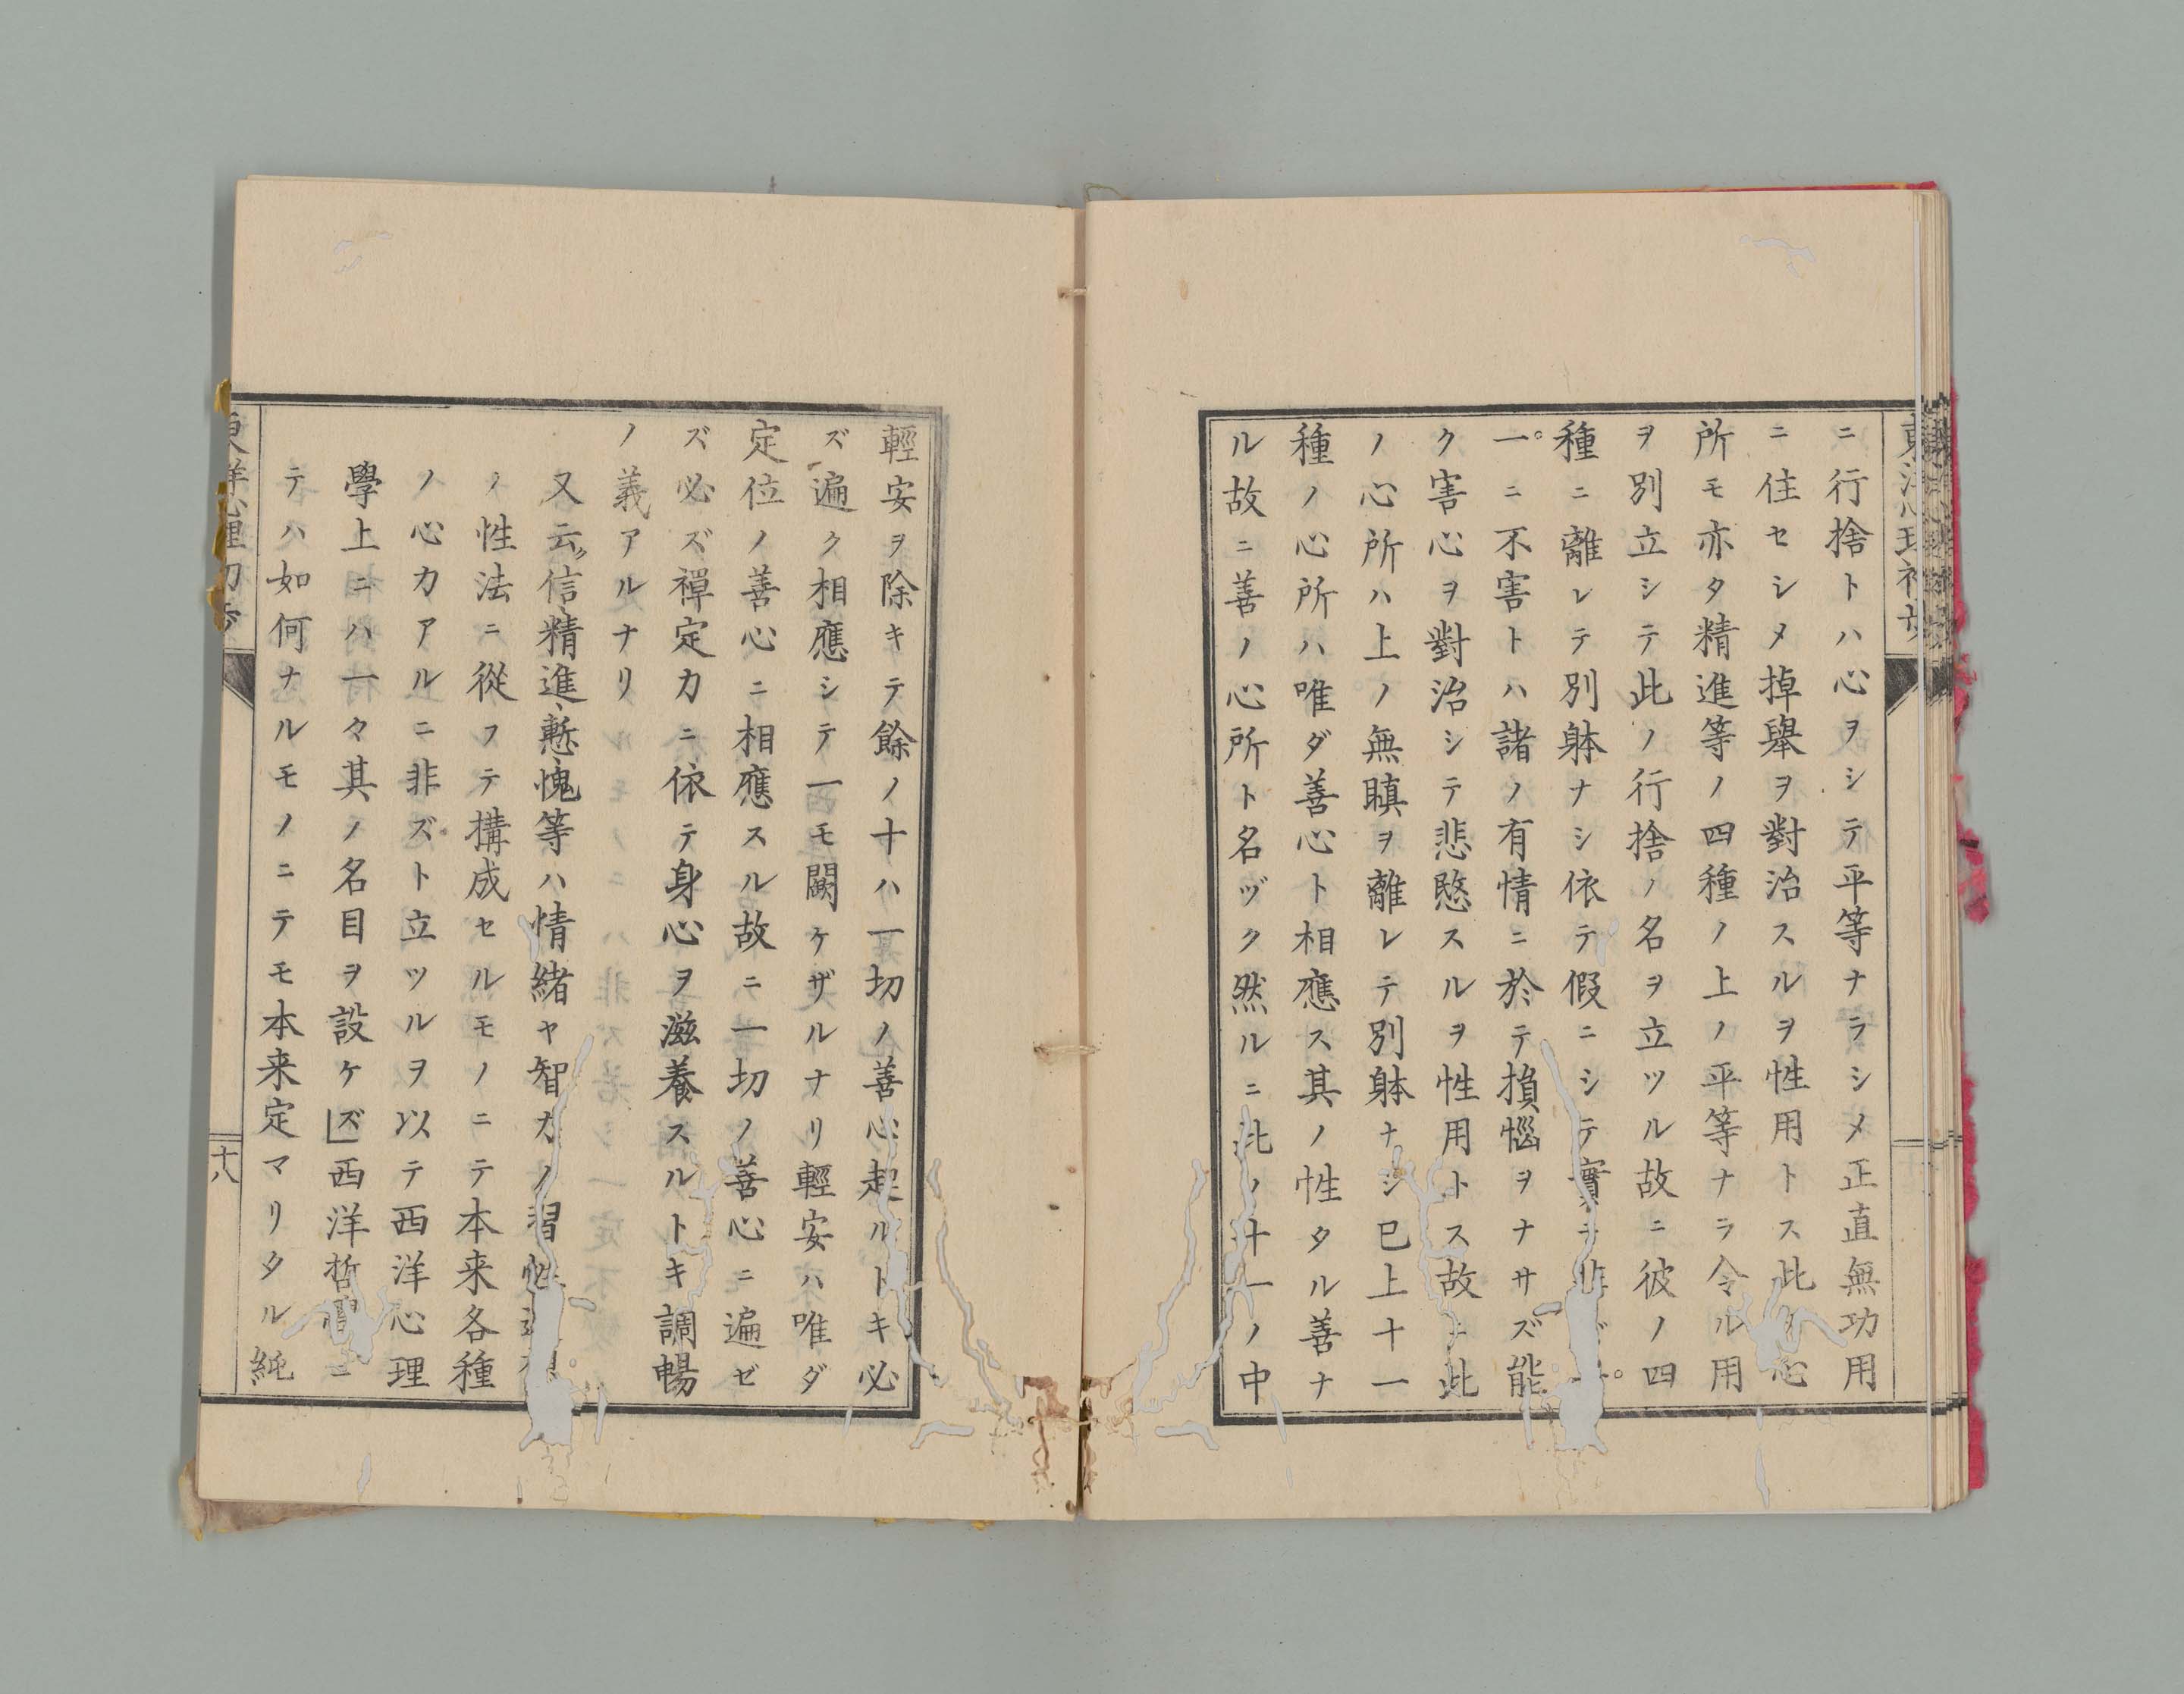 ニ行捨トハ心ヲシテ平等ナラシメ正直無功用
ニ住セシメ掉舉ヲ對治スルヲ性用トス此ノ心
所モ亦タ精進等ノ四種ノ上ノ平等ナラ令ル用
ヲ別立シテ此ノ行捨ノ名ヲ立ツル故ニ彼ノ四
種ニ離レテ別躰ナシ依テ假ニシテ實ニ非ズ十
一ニ不害トハ諸ノ有情ニ於テ損惱ヲナサズ能
ク害心ヲ對治シテ悲愍スルヲ性用トス故ニ此
ノ心所ハ上ノ無瞋ヲ離レテ別躰ナシ已上十一
種ノ心所ハ唯ダ善心ト相應ス其ノ性タル善ナ
ル故ニ善ノ心所ト名ヅク然ルニ此ノ十一ノ中
輕安ヲ除キテ餘ノ十ハ一切ノ善心起ルトキ必
ズ遍ク相應シテ一モ闕ケザルナリ輕安ハ唯ダ
定位ノ善心ニ相應スル故ニ一切ノ善心ニ遍ゼ
ズ必ズ禪定力ニ依テ身心ヲ滋養スルトキ調暢
ノ義アルナリ
又云ク信、精進、慙、愧等ハ情緒ヤ智力ノ習性
ノ性法ニ從フテ構成セルモノニテ本来各種
ノ心力アルニ非ズト立ツルヲ以テ西洋心理
學上ニハ一々其ノ名目ヲ設ケズ」西洋哲學ニ
テハ如何ナルモノニテモ本来定マリタル純
東洋心理初歩
十八